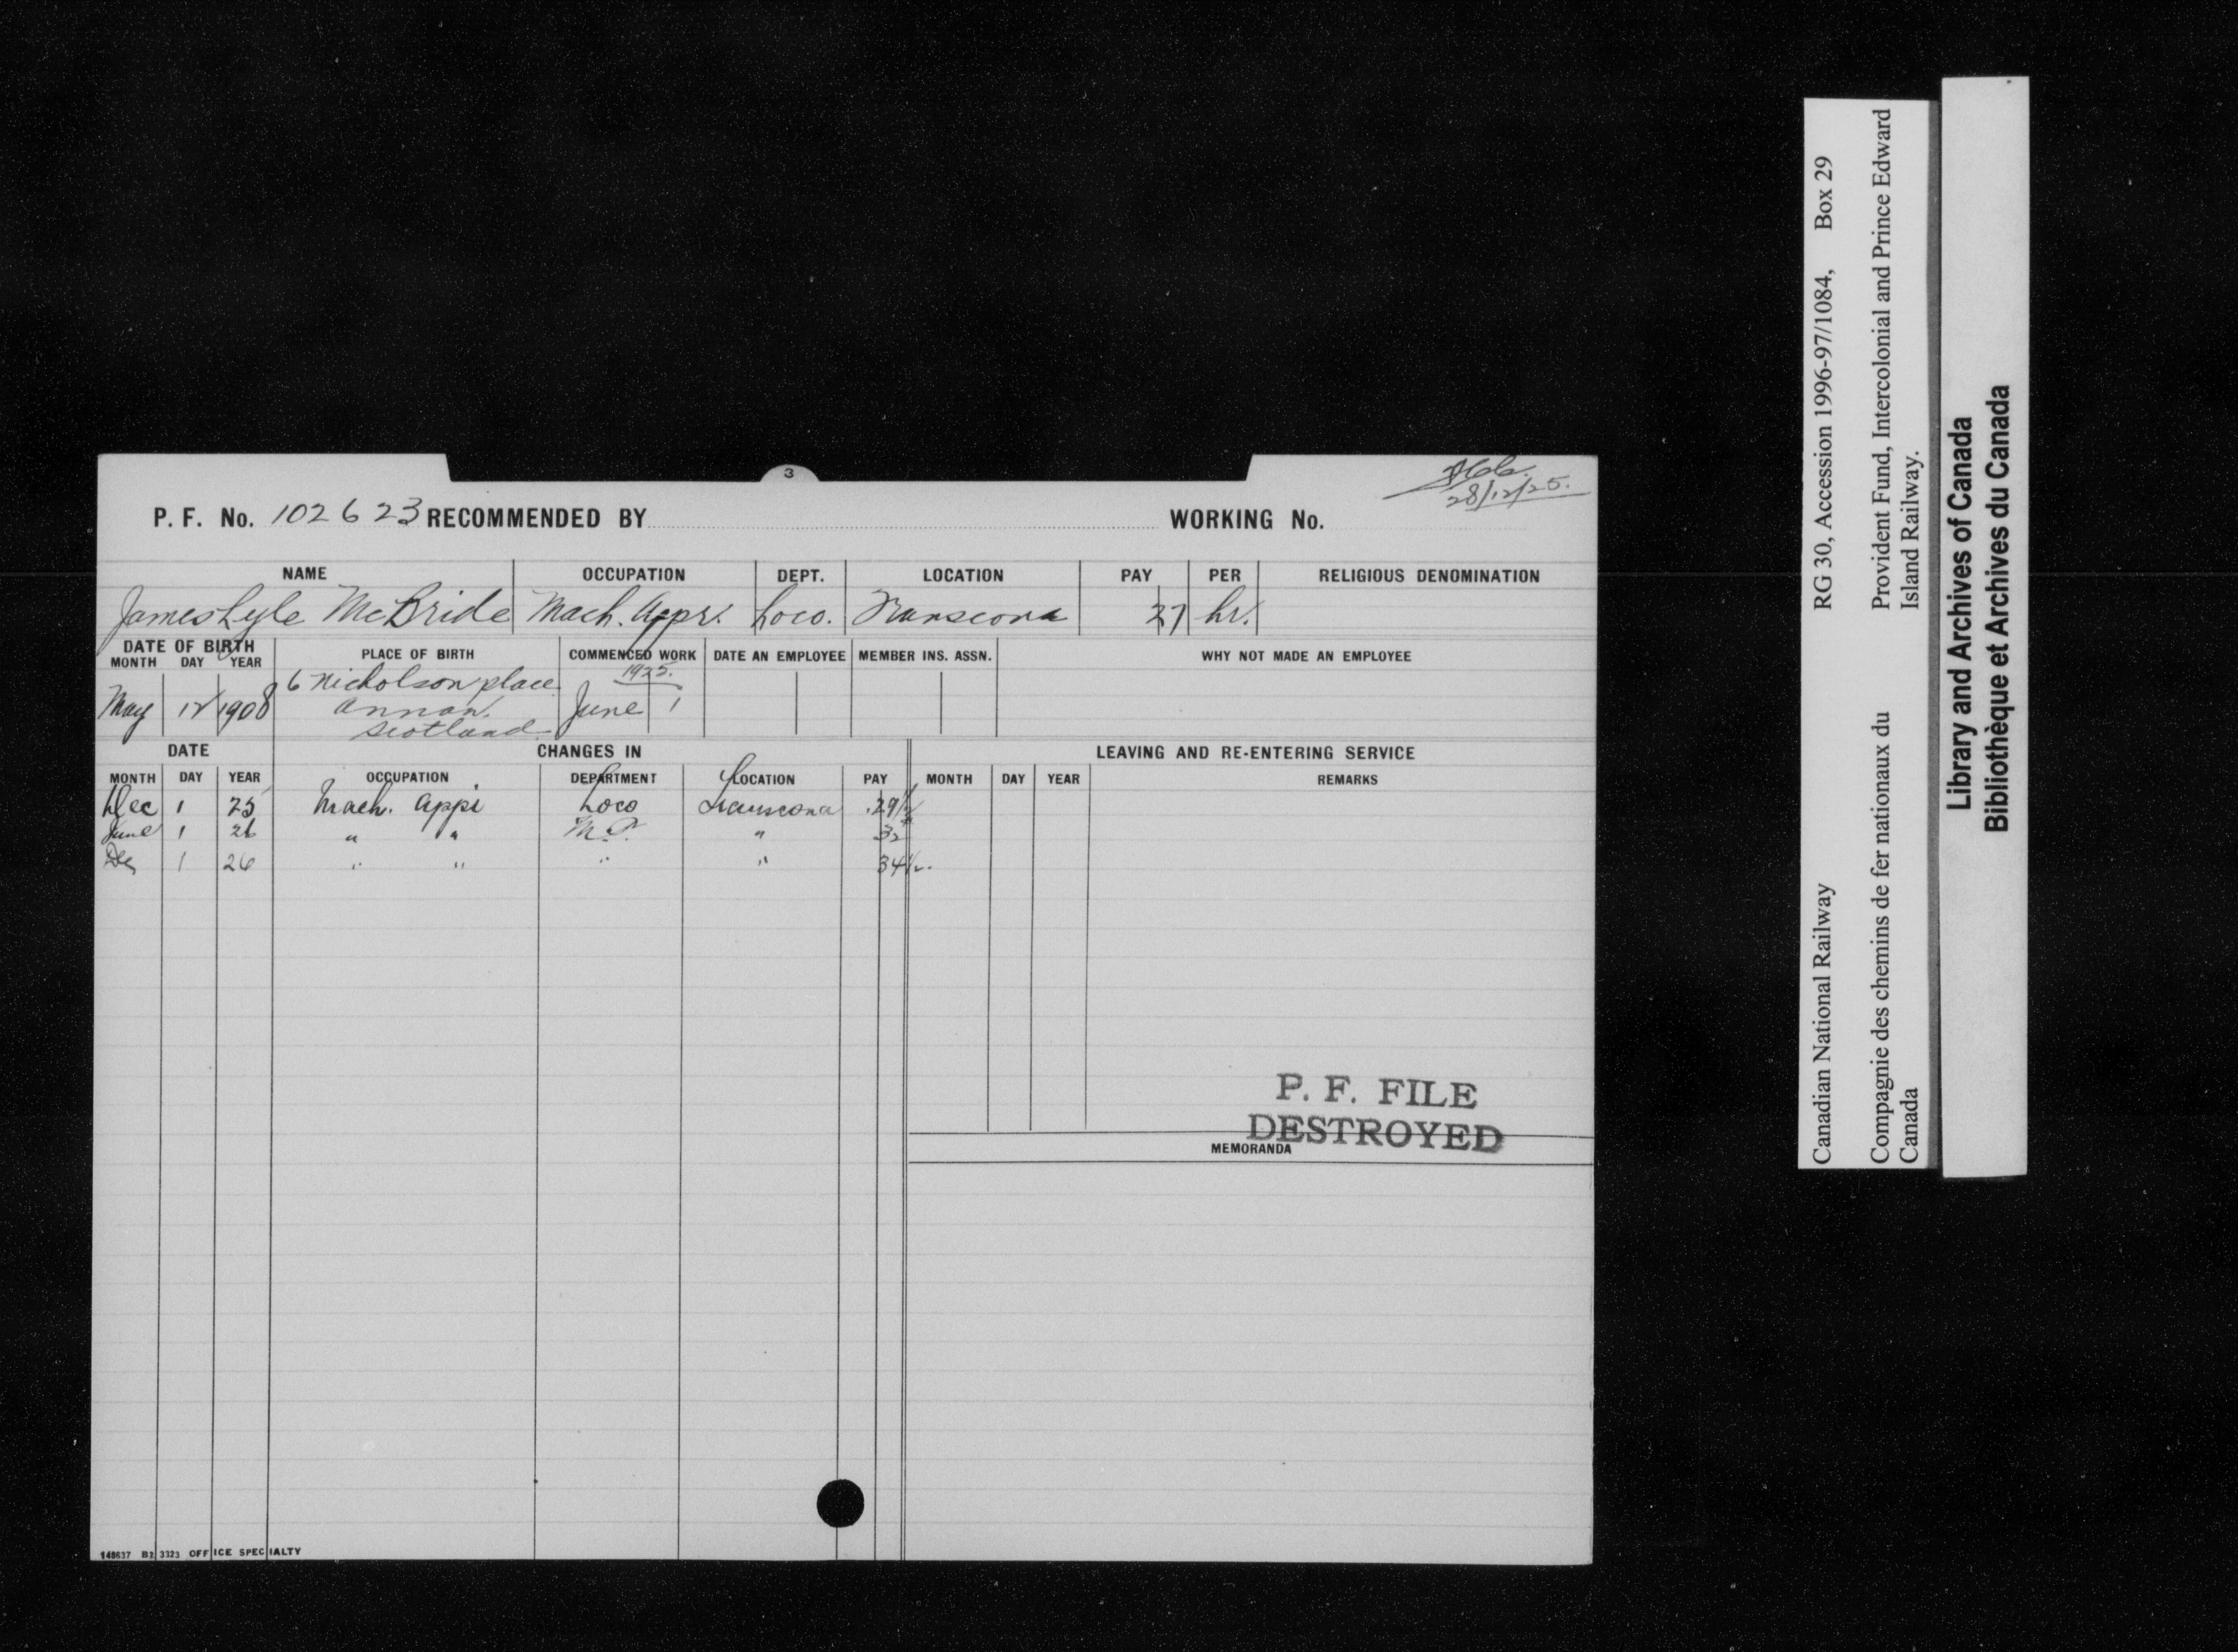 3
28/12/25.
P. F. No. 102623 RECOMMENDED BY WORKING No.
NAME OCCUPATION DEPT. LOCATION PAY PER RELIGIOUS DENOMINATION
James Lyle McBride Mach. Appr. Loco. Transcona 27 hr.
DATE OF BIRTH
MONTH DAY YEAR PLACE OF BIRTH COMMENCED WORK DATE AN EMPLOYEE MEMBER INS. ASSN. WHY NOT MADE AN EMPLOYEE
6 Nicholson place 1925.
May 12 1908 Annan. June 1
Scotland
DATE CHANGES IN LEAVING AND RE-ENTERING SERVICE
MONTH DAY YEAR OCCUPATION DEPARTMENT LOCATION PAY MONTH DAY YEAR REMARKS
Dec 1 25 Mach. Appr Loco Transcona .29 1/2
June 1 26 " " M.P. " 32
Dec 1 26 " " " " 34 1/2
P. F. FILE
DESTROYED
MEMORANDA
148637 B2 3323 OFFICE SPECIALTY
RG 30, Accession 1996-97/1084, Box 29
Canadian National Railway
Provident Fund, Intercolonial and Prince Edward
Island Railway.
Compagnie des chemins de fer nationaux du
Canada
Library and Archives of Canada
Bibliothèque et Archives du Canada